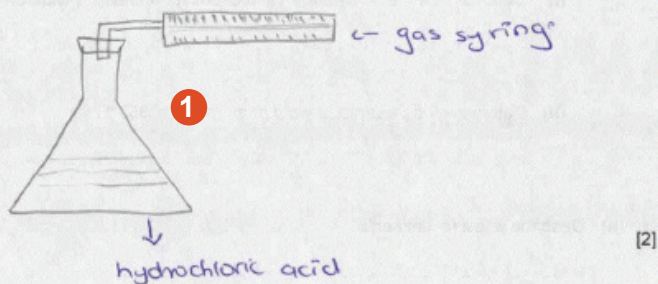 ← gas syring
1
[2]
hydrochloric acid